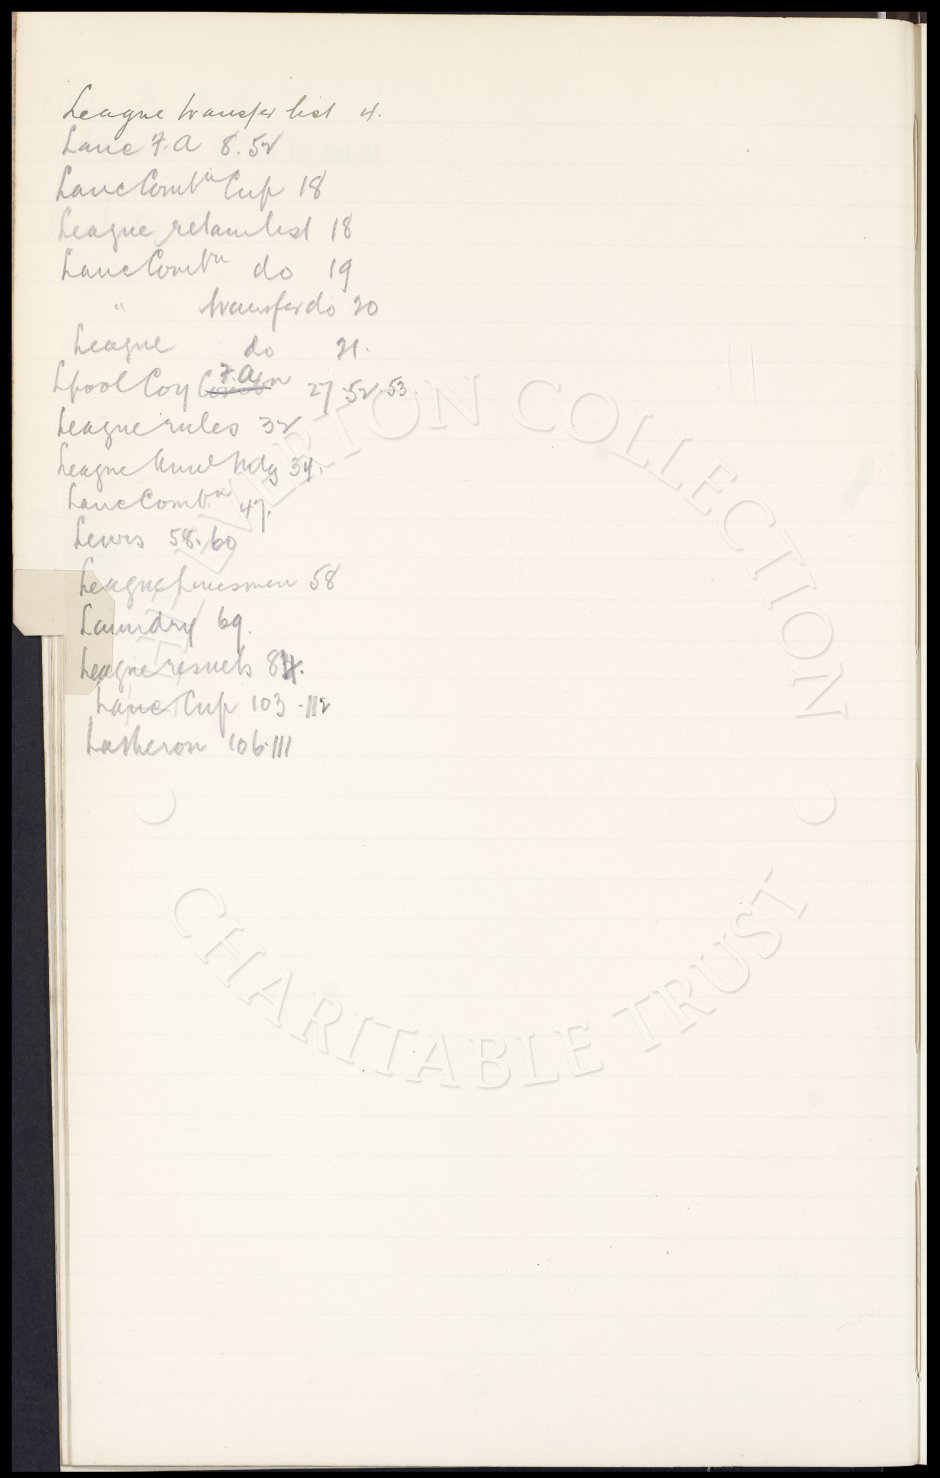 League transfer list 4.
Lanc F.A 8.52
Lanc Combn Cup 18
League retain list 18
Lanc Combn do 19
" transfer do 20
League do 21.
F.A
Lpool Coy 27.52.53.
League rules 32
League Annl Mtg 34.
Lanc Combn 47.
Lewis 58.60
League linesmen 58
Laundry 69.
League results 84.
Lanc Cup 103.112
Latheron 106.111
THE EVERTON COLLECTION
CHARITABLE TRUST